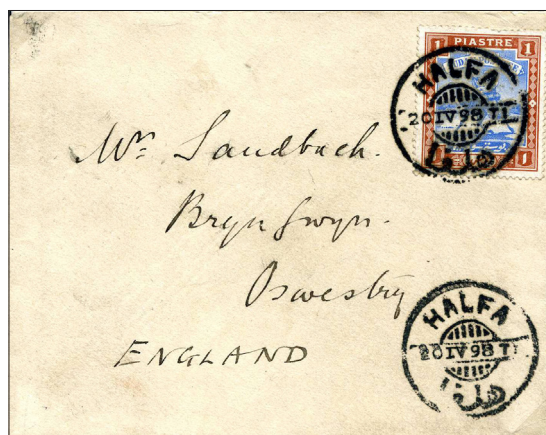 1 PIASTRE 1
HALFA
20 IV 98 T1
حلفا
1 1
Mrs Sandbach.
Bryngwyn.
Oswestry
ENGLAND
HALFA
20 IV 98 T1
حلفا